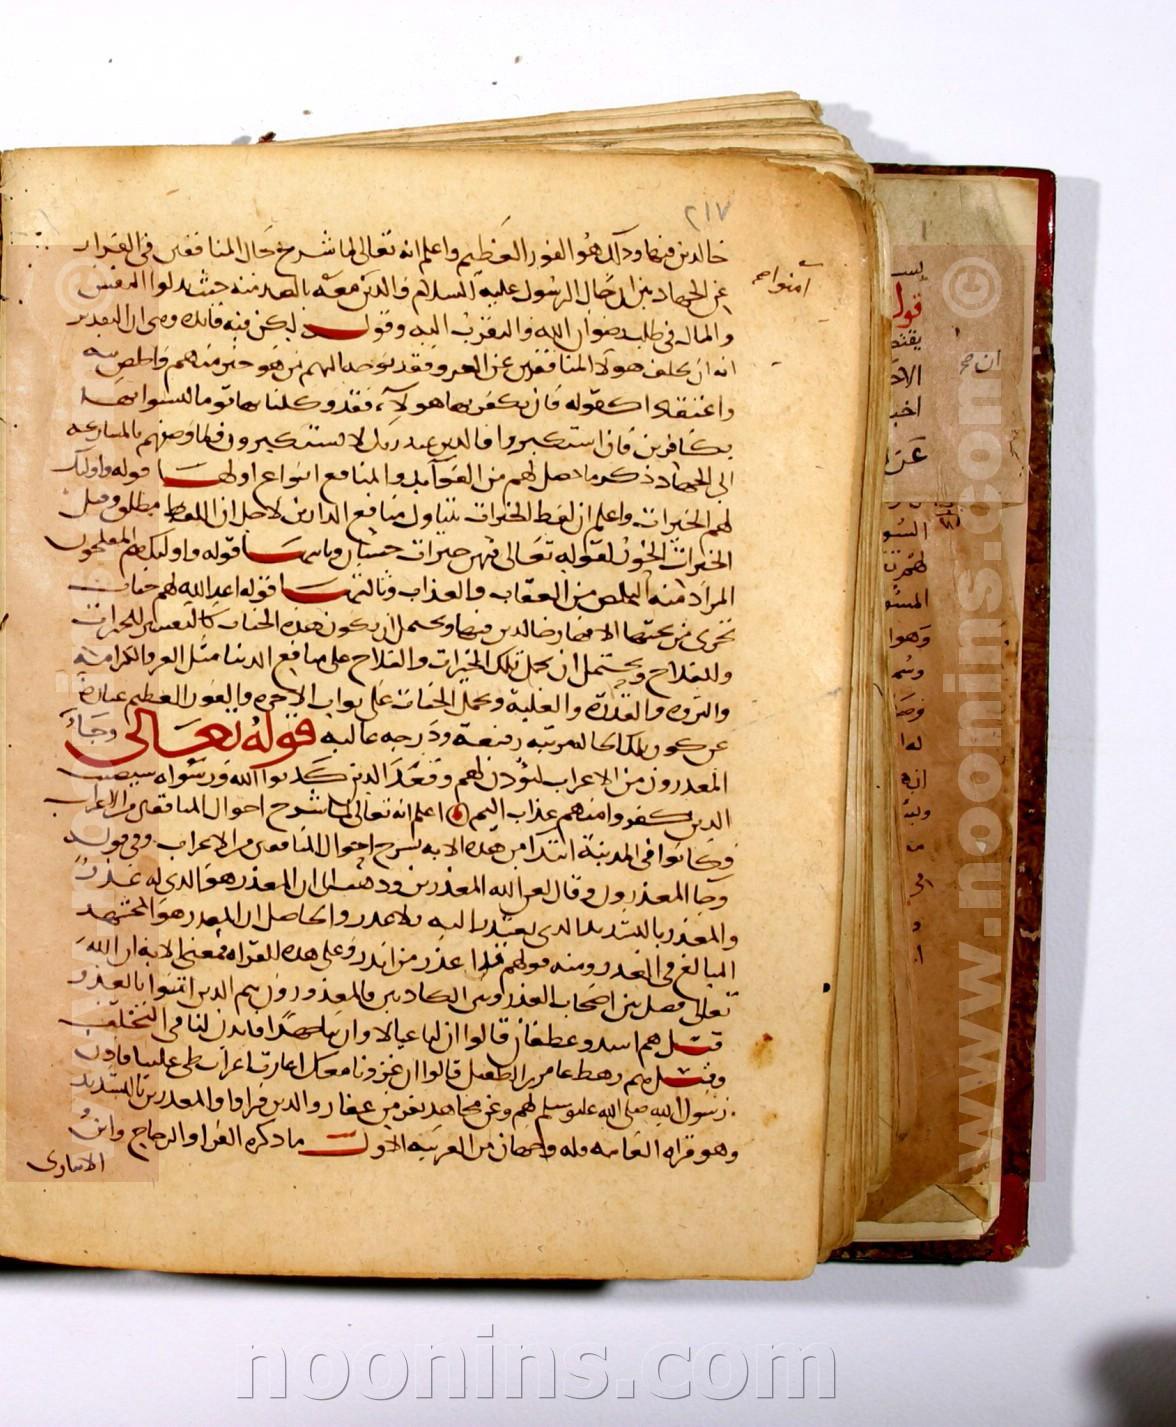 ٢١٧
خالدين فيها وذلك هو الفوز العظيم واعلم انه تعالى لما شرح حال المنافقين في الفرار
عن الجهاد بين ان حال الرسول عليه السلام والذين معه بالضد منه حيث بذلوا النفس
آمنوا صح
والمال في طلب رضوان الله والتقرب اليه وقوله لكن فيه فائده وهي ان التقدير
انه ان تخلف هولا المنافقين عن الغزو فقد توجه اليهم من هو خير منهم واخلص نيه
واعتقادا كقوله فان يكفر بها هولآء فقد وكلنا بها قوما ليسوا بها
بكافرين فان استكبروا فالذين عند ربك لا يستكبرون فلما وصفهم بالمسارعه
الى الجهاد ذكر ما حصل لهم من الفوآيد والمنافع انواع اولها قوله واوليك
لهم الخيرات واعلم ان لفظ الخيرات يتناول منافع الدارين لاجل ان اللفظ مطلق وقيل
الخيرات الحور لقوله تعالى فيهن خيرات حسان وثانيها قوله واوليك هم المفلحون
المراد منه التخلص من العقاب والعذاب وثالثها قوله اعد الله لهم جنات
تجرى من تحتها الانهار خالدين فيها ويحتمل ان يكون هذه الجنات كالتفسير للخيرات
وللفلاح ويحتمل ان يحمل تلك الخيرات والفلاح على منافع الدنيا مثل الغزو الكرامة
والثروه والقدرة والغلبة وتحمل الجنات على ثواب الاخره والفوز العظيم عبارة
عن كون تلك الحاله مرتبه رفيعة ودرجه عاليه قوله تعالى وجآء
المعذرون من الاعراب ليؤذن لهم وقعد الذين كذبوا الله ورسوله سيصيب
الذين كفروا منهم عذاب اليم اعلم انه تعالى لما شرح احوال المنافقين من الاعراب
وكانوا في المدينة ابتدا من هذه الايه بشرح احوال المنافقين من الاعراب وفي قوله
وجآ المعذرون وقال لعن الله المعذرين وذهب الى ان المعذر هو الذي له عذر
والمعذر بالتشديد الذي يعتذر اليه بلا عذر والحاصل ان المعذر هو المجتهد
المبالغ في العذر ومنه قولهم قد اعذر من انذر وعلى هذه القراه فمعنى الايه ان الله
تعالى فصل بين اصحاب العذر وبين الكاذبين فالمعذورون هم الذين اتوا بالعذر
قيل هم اسد وغطفان قالوا ان لنا عيالا وان بنا جهدا فاىذن لنا في التخلف
وقيل هم رهط عامر بن الطفيل قالوا ان غزونا معك اغارت اعراب طي علينا فاذن
رسول الله صلى الله عليه وسلم لهم وعن مجاهد نفر من غفار والذين قراوا المعذرين بالتشديد
وهو قراه العامه فله وجهان من العربيه الاول ما ذكره الفرا والزجاج وابن
الانبارى
قول
ان صح